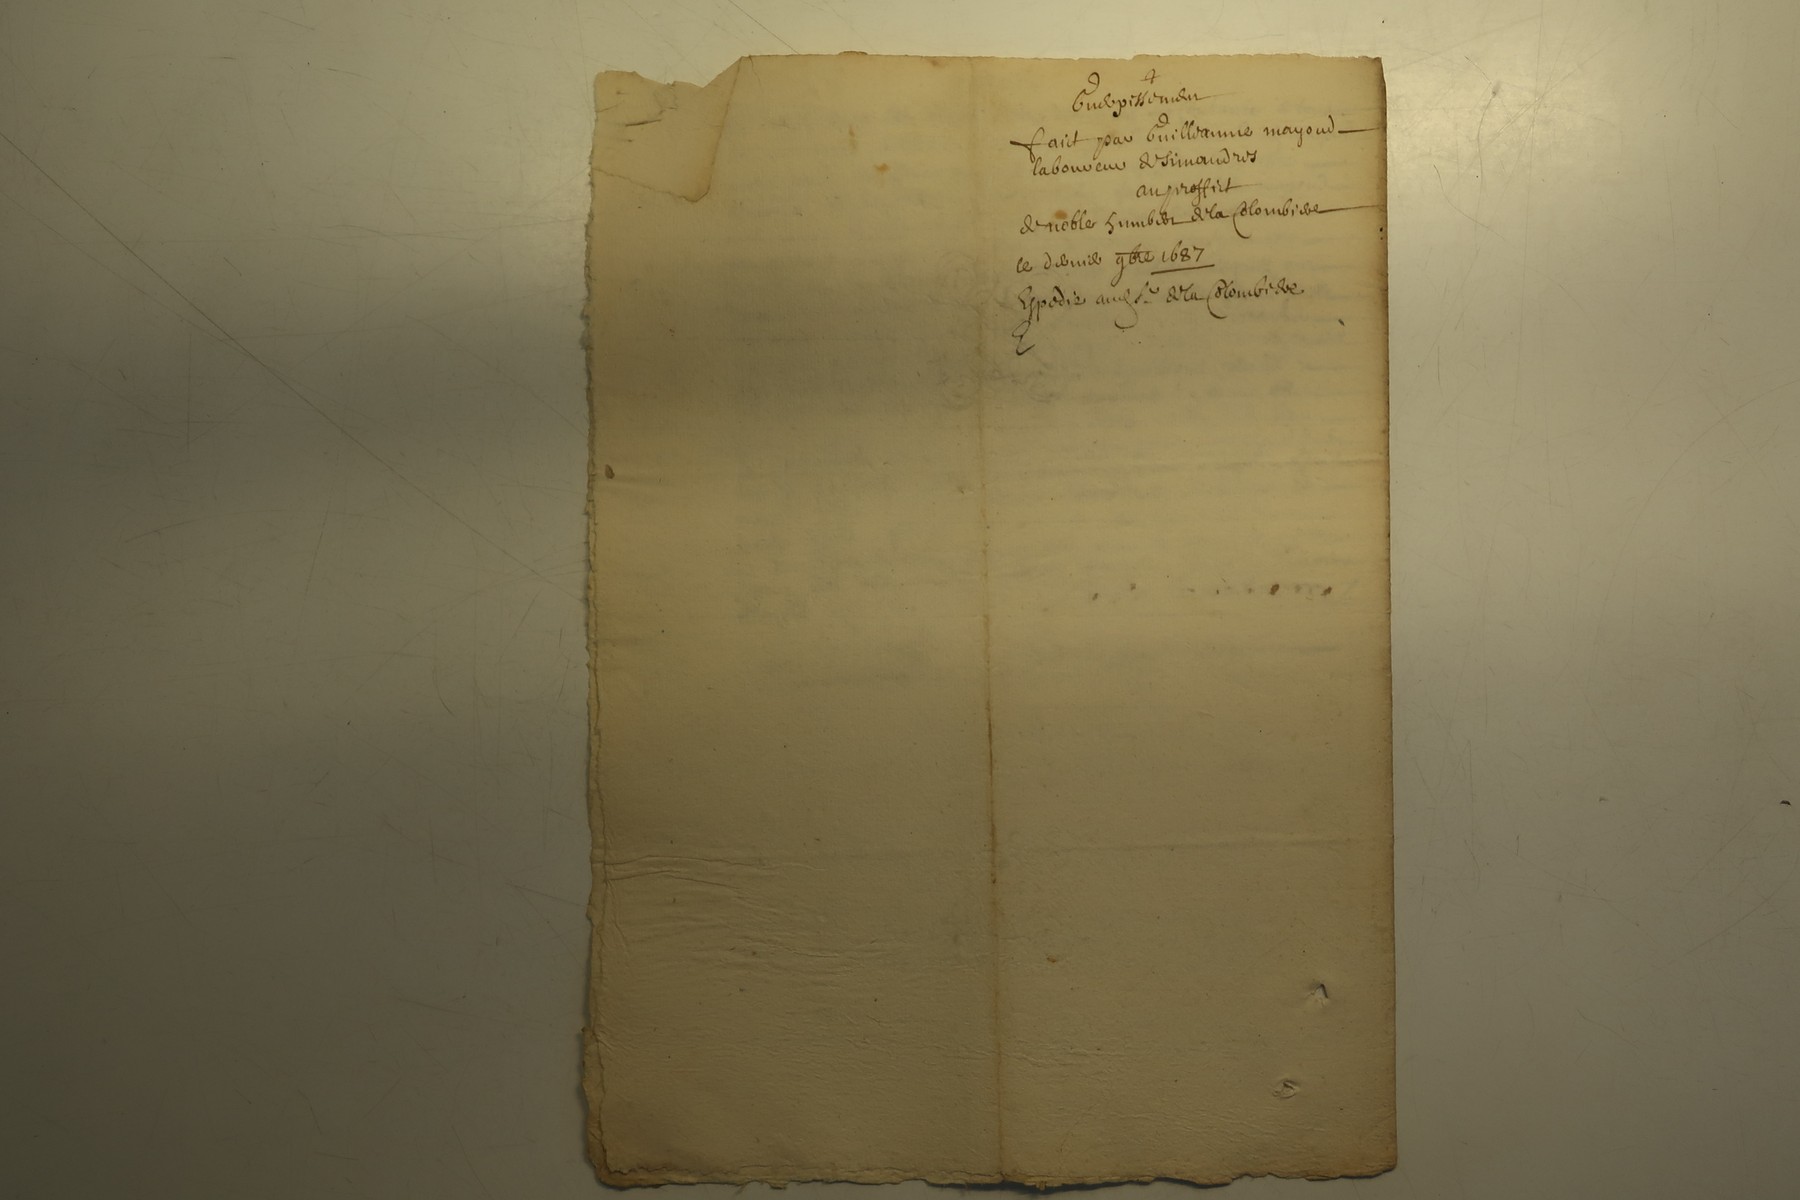 +
Guerpissement
faict par Guilleaume mayoud
laboureur de simandres
au proffict
de noble humbert de la Colombiere
le dernier 9bre 1687
Expedie aud sr de la Colombiere